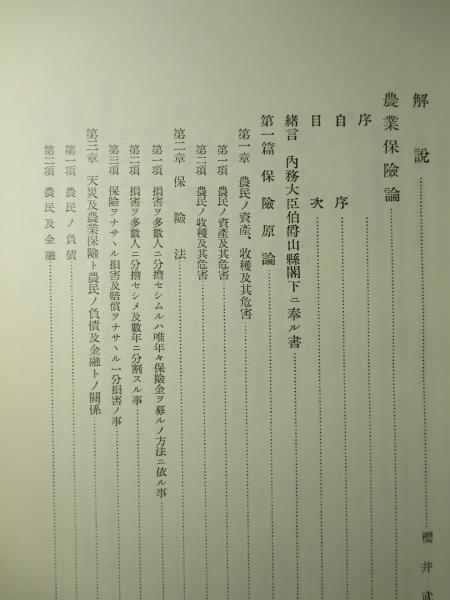 解說 櫻井武
農業保險論
序
自序
目次
緒言 內務大臣伯爵山縣閣下ニ奉ル書
第一篇 保險原論
第一章 農民ノ資產、收穫及其危害
第一項 農民ノ資產及其危害
第二項 農民ノ收穫及其危害
第二章 保險法
第一項 損害ヲ多數人ニ分擔セシムルハ唯年々保險金ヲ募ルノ方法ニ依ル事
第二項 損害ヲ多數人ニ分擔セシメ及數年ニ分割スル事
第三項 保險ヲナサヽル損害及賠償ヲナサヽル一分損害ノ事
第三章 天災及農業保險ト農民ノ負債及金融トノ關係
第一項 農民ノ負債
第二項 農民及金融